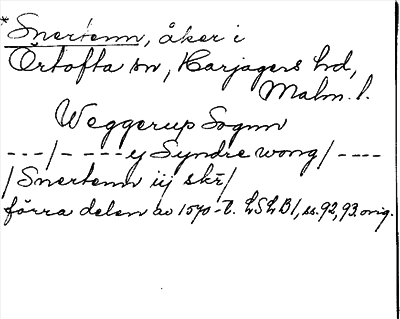 * Snertenn, åker i
Örtofta sn, Harjagers hd,
Malm. l.
Weggerup Sognn
---/----ey Syndre wong/----
/Snertenn iij skr/
förra delen av 1570-t. LSLB1, ss. 92, 93. orig.